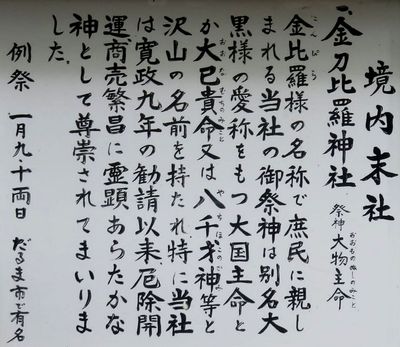 境内末社
一、金刀比羅神社 祭神 大物主命
おおものぬしのみこと
こんぴら
金比羅様の名称で庶民に親し
まれる当社の御祭神は別名大
黒様の愛称をもつ大国主命と
おおなむちのみこと
か大已貴命又は八千才神等と
やちほこのかみ
沢山の名前を持たれ特に当社
は寛政九年の勧請以来、厄除開
運商売繁昌に霊顕あらたかな
神として尊崇されてまいりま
した。
例祭 一月九・十両日 だるま市で有名